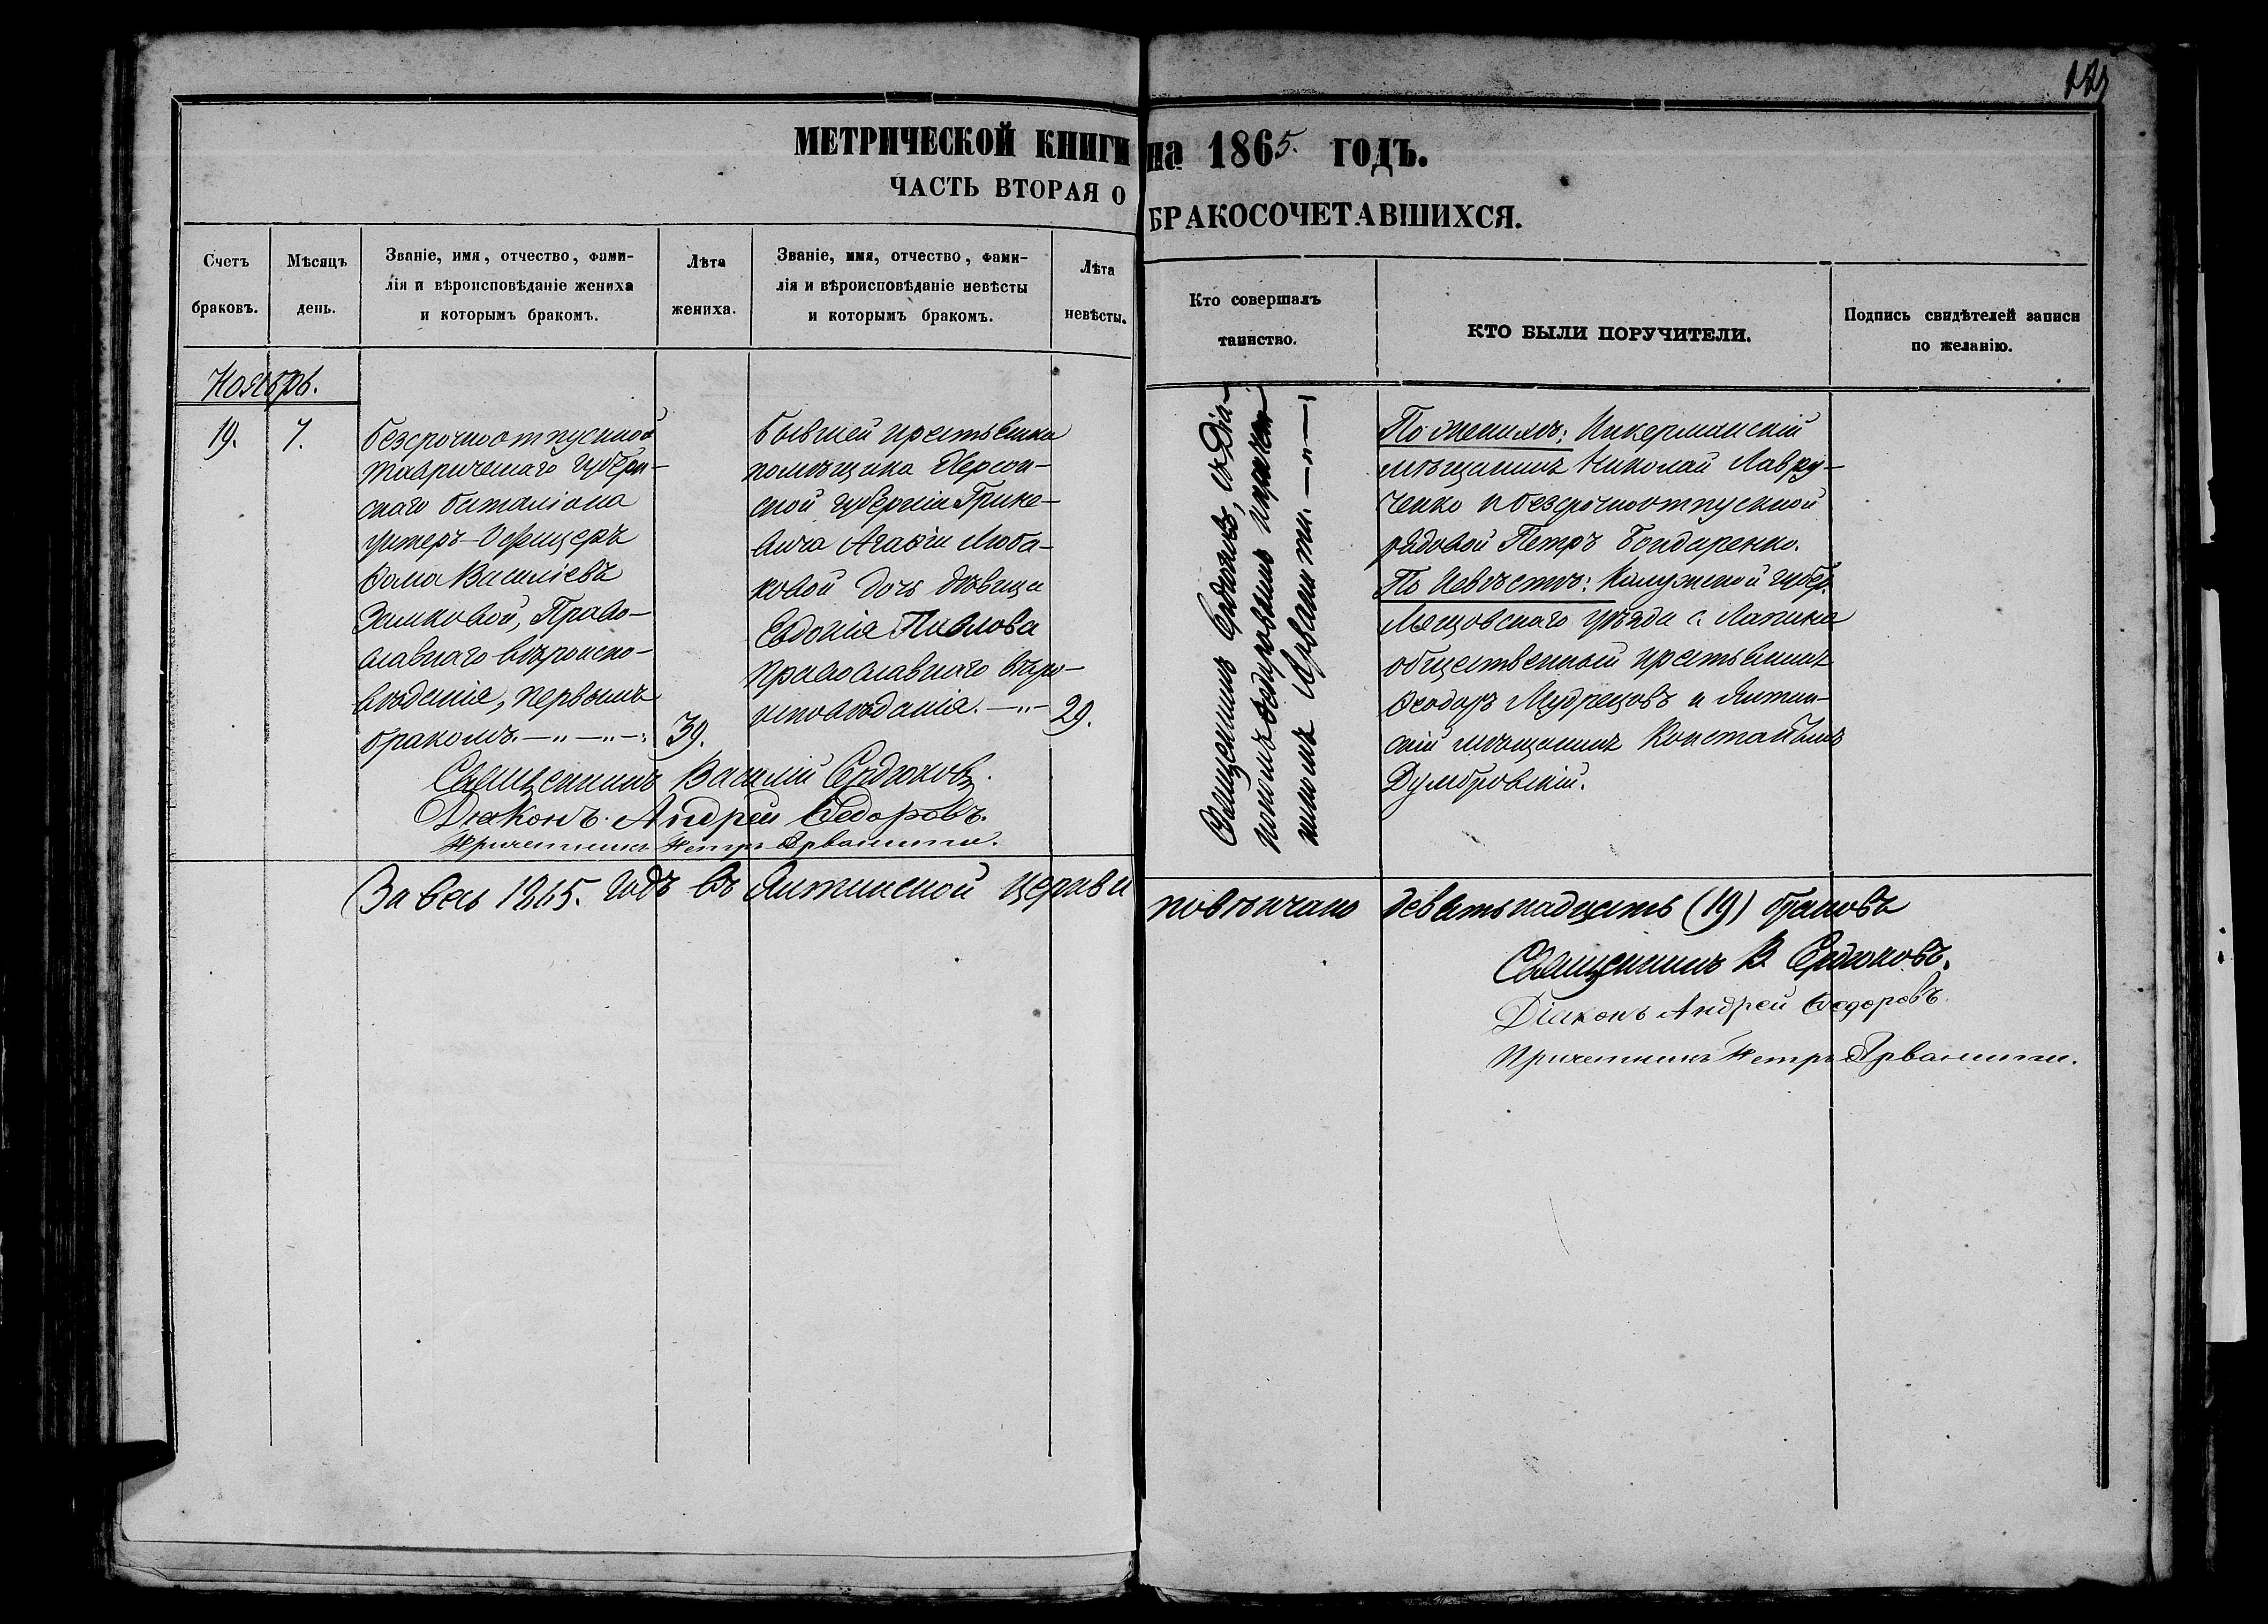 МЕТРИЧЕСКОЙ КНИГИ на 1865. ГОДЪ.
ЧАСТЬ ВТОРАЯ О БРАКОСОЧЕТАВШИХСЯ.
Счетъ
браковъ.
Мѣсяцъ
день.
Званіе, имя, отчество, фами-
лія и вѣроисповѣданіе жениха
и которымъ бракомъ.
Лѣта
жениха.
Званіе, имя, отчество, фами-
лія и вѣроисповѣданіе невѣсты
и которымъ бракомъ.
Лѣта
невѣсты.
Кто совершалъ
таинство.
КТО БЫЛИ ПОРУЧИТЕЛИ.
Подпись свидѣтелей записи
по желанію.
Ноябрь.
19.
7.
безсрочноотпускной
Таврическаго Губерн-
скаго баталіона
унтеръ-Офицеръ
Ѳома Василіевъ
Замковой, Право-
славнаго вѣроиспо-
вѣданія, первымъ
бракомъ.
39.
бывшей крестьянки
помѣщика Херсон-
ской Губерніи
Агафіи Люба-
ковой дочь дѣвица
Евдокія Павлова
православнаго вѣро-
исповѣданія.
29.
Священникъ Сердюковъ, съ Діа-
кономъ Ѳедоровымъ и причет-
никомъ Арванити.
По женихѣ: Инкерманскій
мѣщанинъ Николай Лавру-
ченко и безсрочноотпускной
рядовой Петръ Бондаренко.
По невѣстѣ: Калужской губер.
Мещовскаго уѣзда с.
общественный крестьянинъ
Ѳеодоръ Мудрецовъ и Ялтин-
скій мѣщанинъ Константинъ
Думбровскій.
Священникъ Василій Сердюковъ.
Діаконъ Андрей Ѳедоровъ.
Причетникъ Петръ Арванити.
За весь 1865. годъ въ Ялтинской церкви повѣнчано девятьнадцать (19) браковъ
Священникъ В Сердюковъ.
Діаконъ Андрей Ѳедоровъ.
Причетникъ Петръ Арванити.